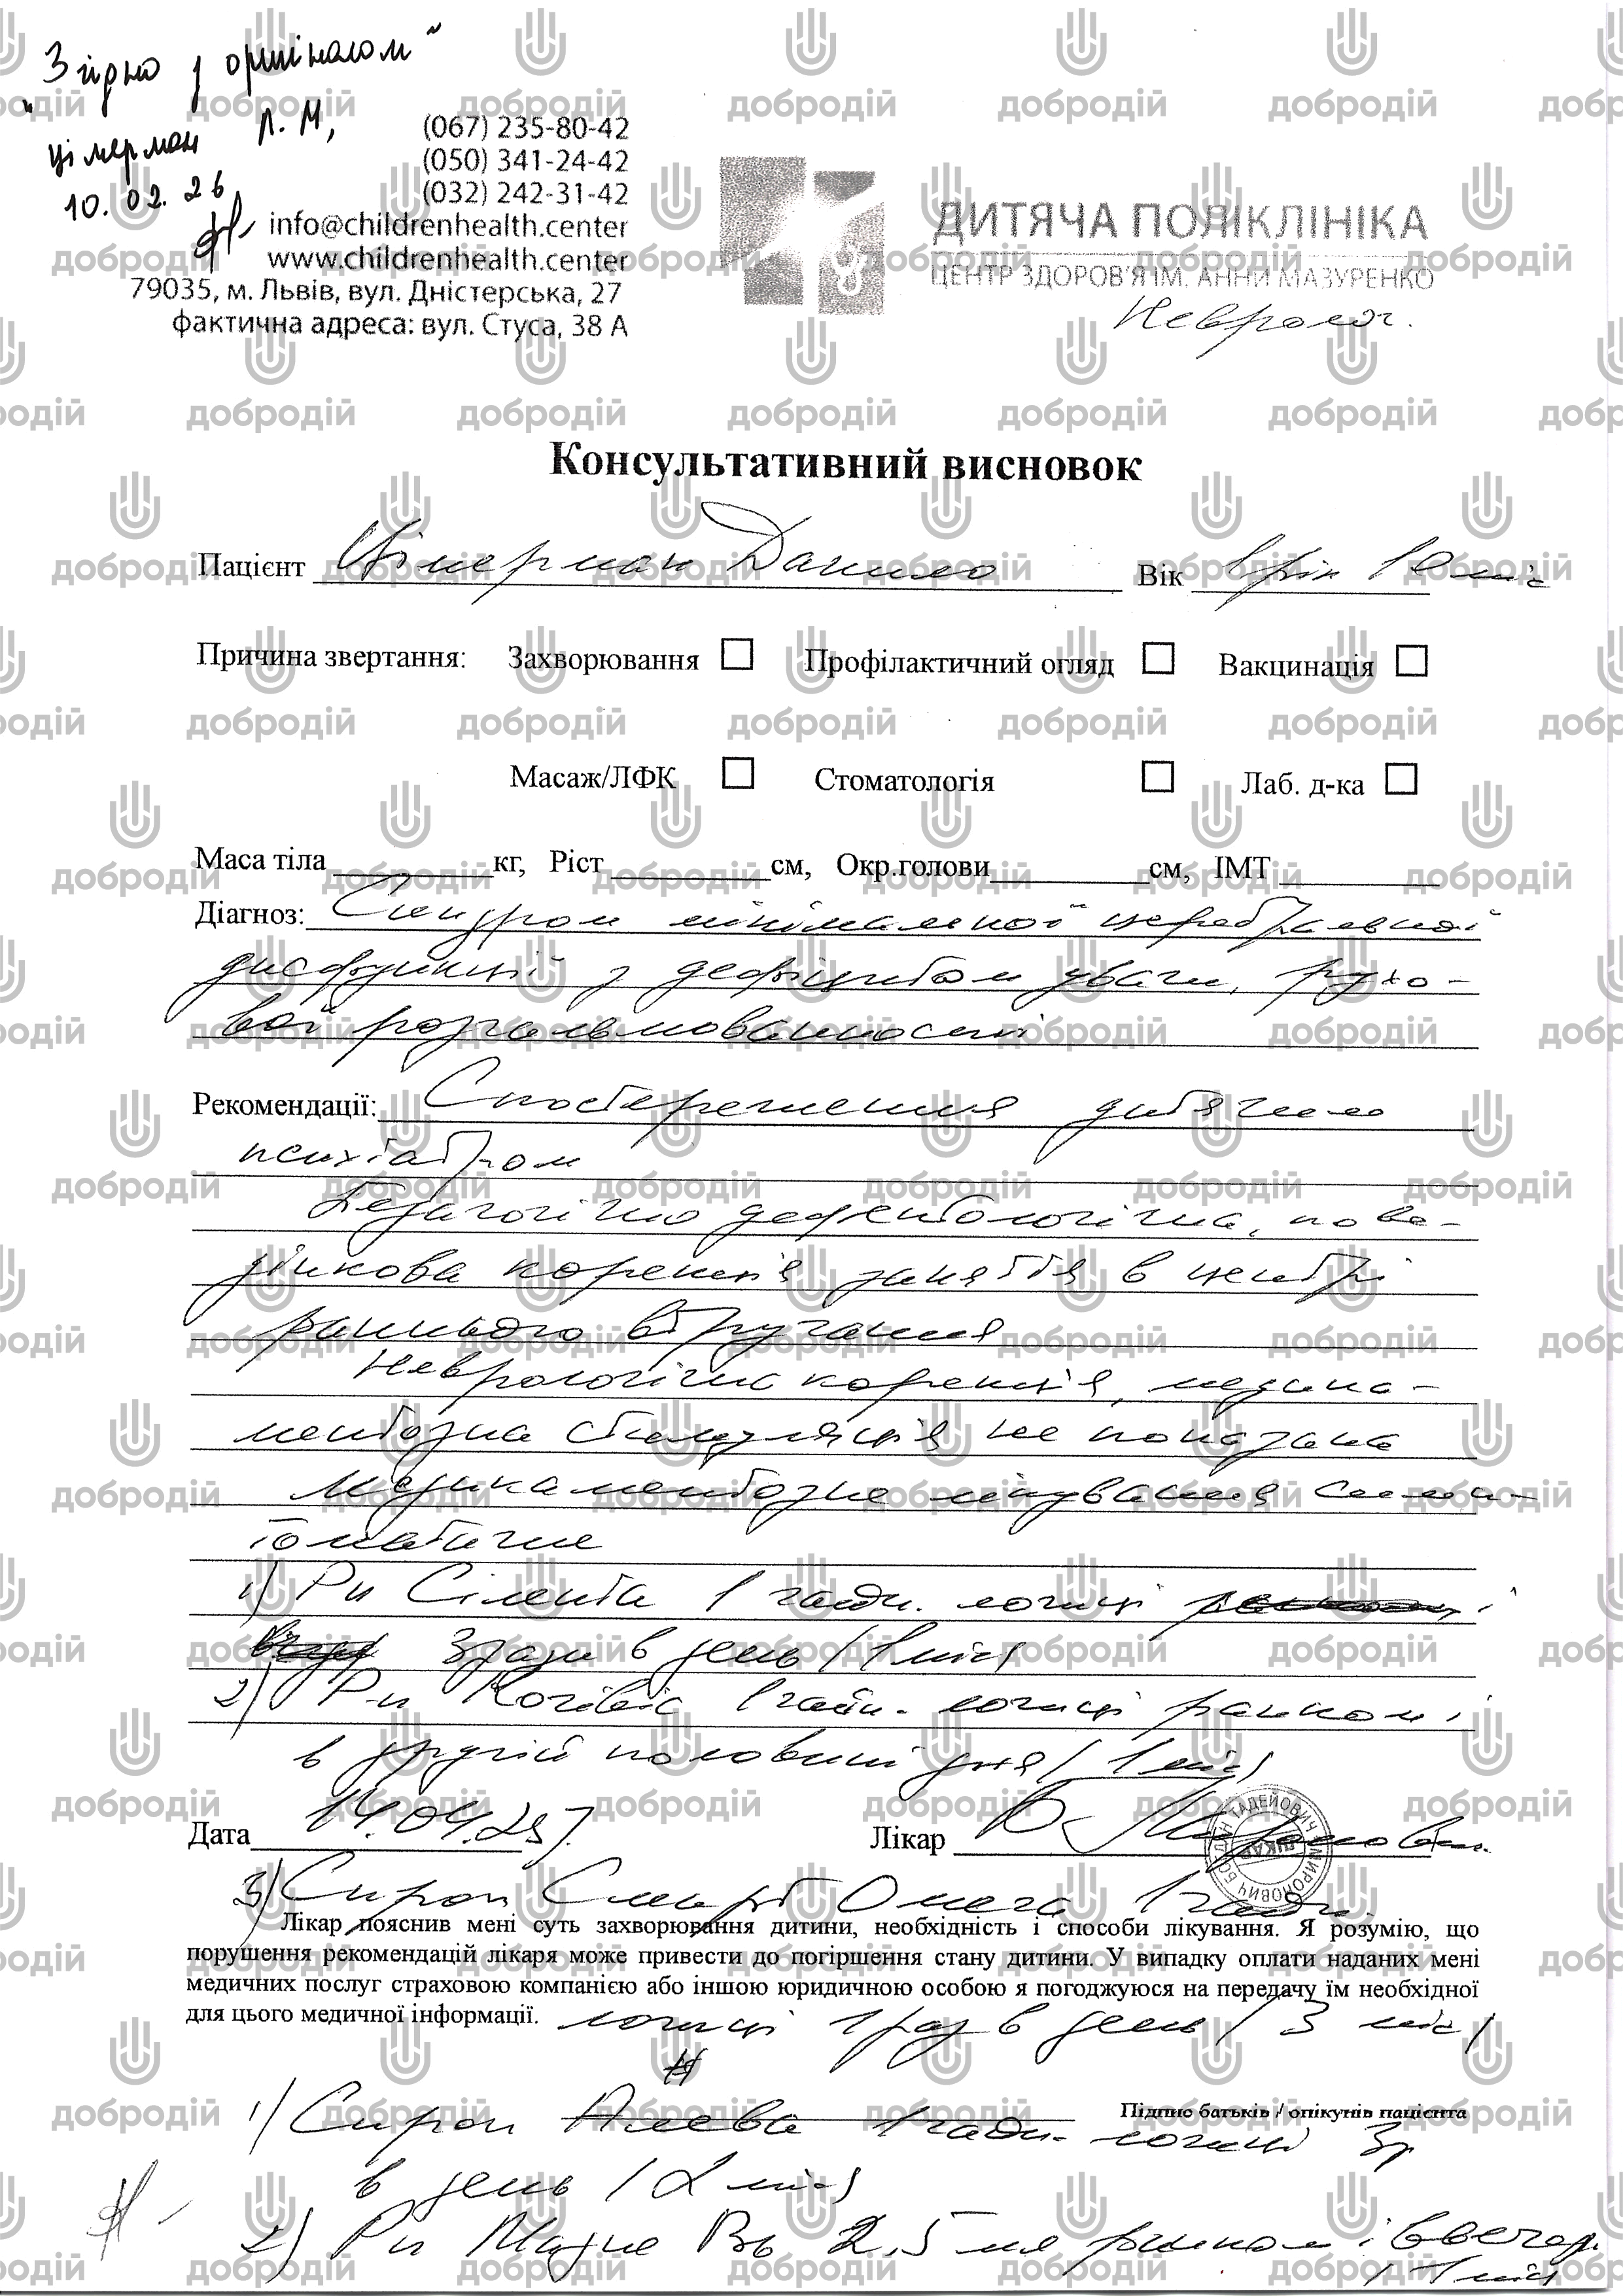 "Згідно з оригіналом"
Цімерман Л. М,
10. 02. 26
(067) 235-80-42
(050) 341-24-42
(032) 242-31-42
info@childrenhealth.center
www.childrenhealth.center
79035, м. Львів, вул. Дністерська, 27
фактична адреса: вул. Стуса, 38 А
ДИТЯЧА ПОЛІКЛІНІКА
ЦЕНТР ЗДОРОВ'Я ІМ. АННИ МАЗУРЕНКО
Невролог.
Консультативний висновок
Пацієнт Цімерман Данило Вік 1 рік 10 міс
Причина звертання: Захворювання Профілактичний огляд Вакцинація
Масаж/ЛФК Стоматологія Лаб. д-ка
Маса тіла кг, Ріст см, Окр.голови см, ІМТ
Діагноз: Синдром мінімальної церебральної
дисфункції з дефіцитом уваги, рухо-
вої розгальмованності
Рекомендації: Спостереження дитячого
психіатром
Педагогічно дефектологічна, пове-
дінкова корекція заняття в центрі
раннього втручання
Неврологічна корекція, медика-
ментозна стимуляція не показана
Медикаментозне лікування симп-
томатичне
1) Рп Сілента 1 чайн. ложці і
3 рази в день / 1 міс /
2) Рп Когівіс 1 чайн. ложці ранком і
в другій половині дня / 1 міс /
Дата 14.04.25 Лікар В Миронович
БОГДАН ТАДЕЙОВИЧ МИРОНОВИЧ
ЛІКАР
3) Сироп Смарт Омега 1 чайн
Лікар пояснив мені суть захворювання дитини, необхідність і способи лікування. Я розумію, що
порушення рекомендацій лікаря може привести до погіршення стану дитини. У випадку оплати наданих мені
медичних послуг страховою компанією або іншою юридичною особою я погоджуюся на передачу їм необхідної
для цього медичної інформації.
ложці 1 раз в день / 3 міс /
Підпис батьків / опікунів пацієнта
1) Сироп 1 чайн. ложці 3 р
в день / 2 міс /
2) Рп Магне В6 2,5 мл ранком і ввечері
/ 1 міс /
добродій